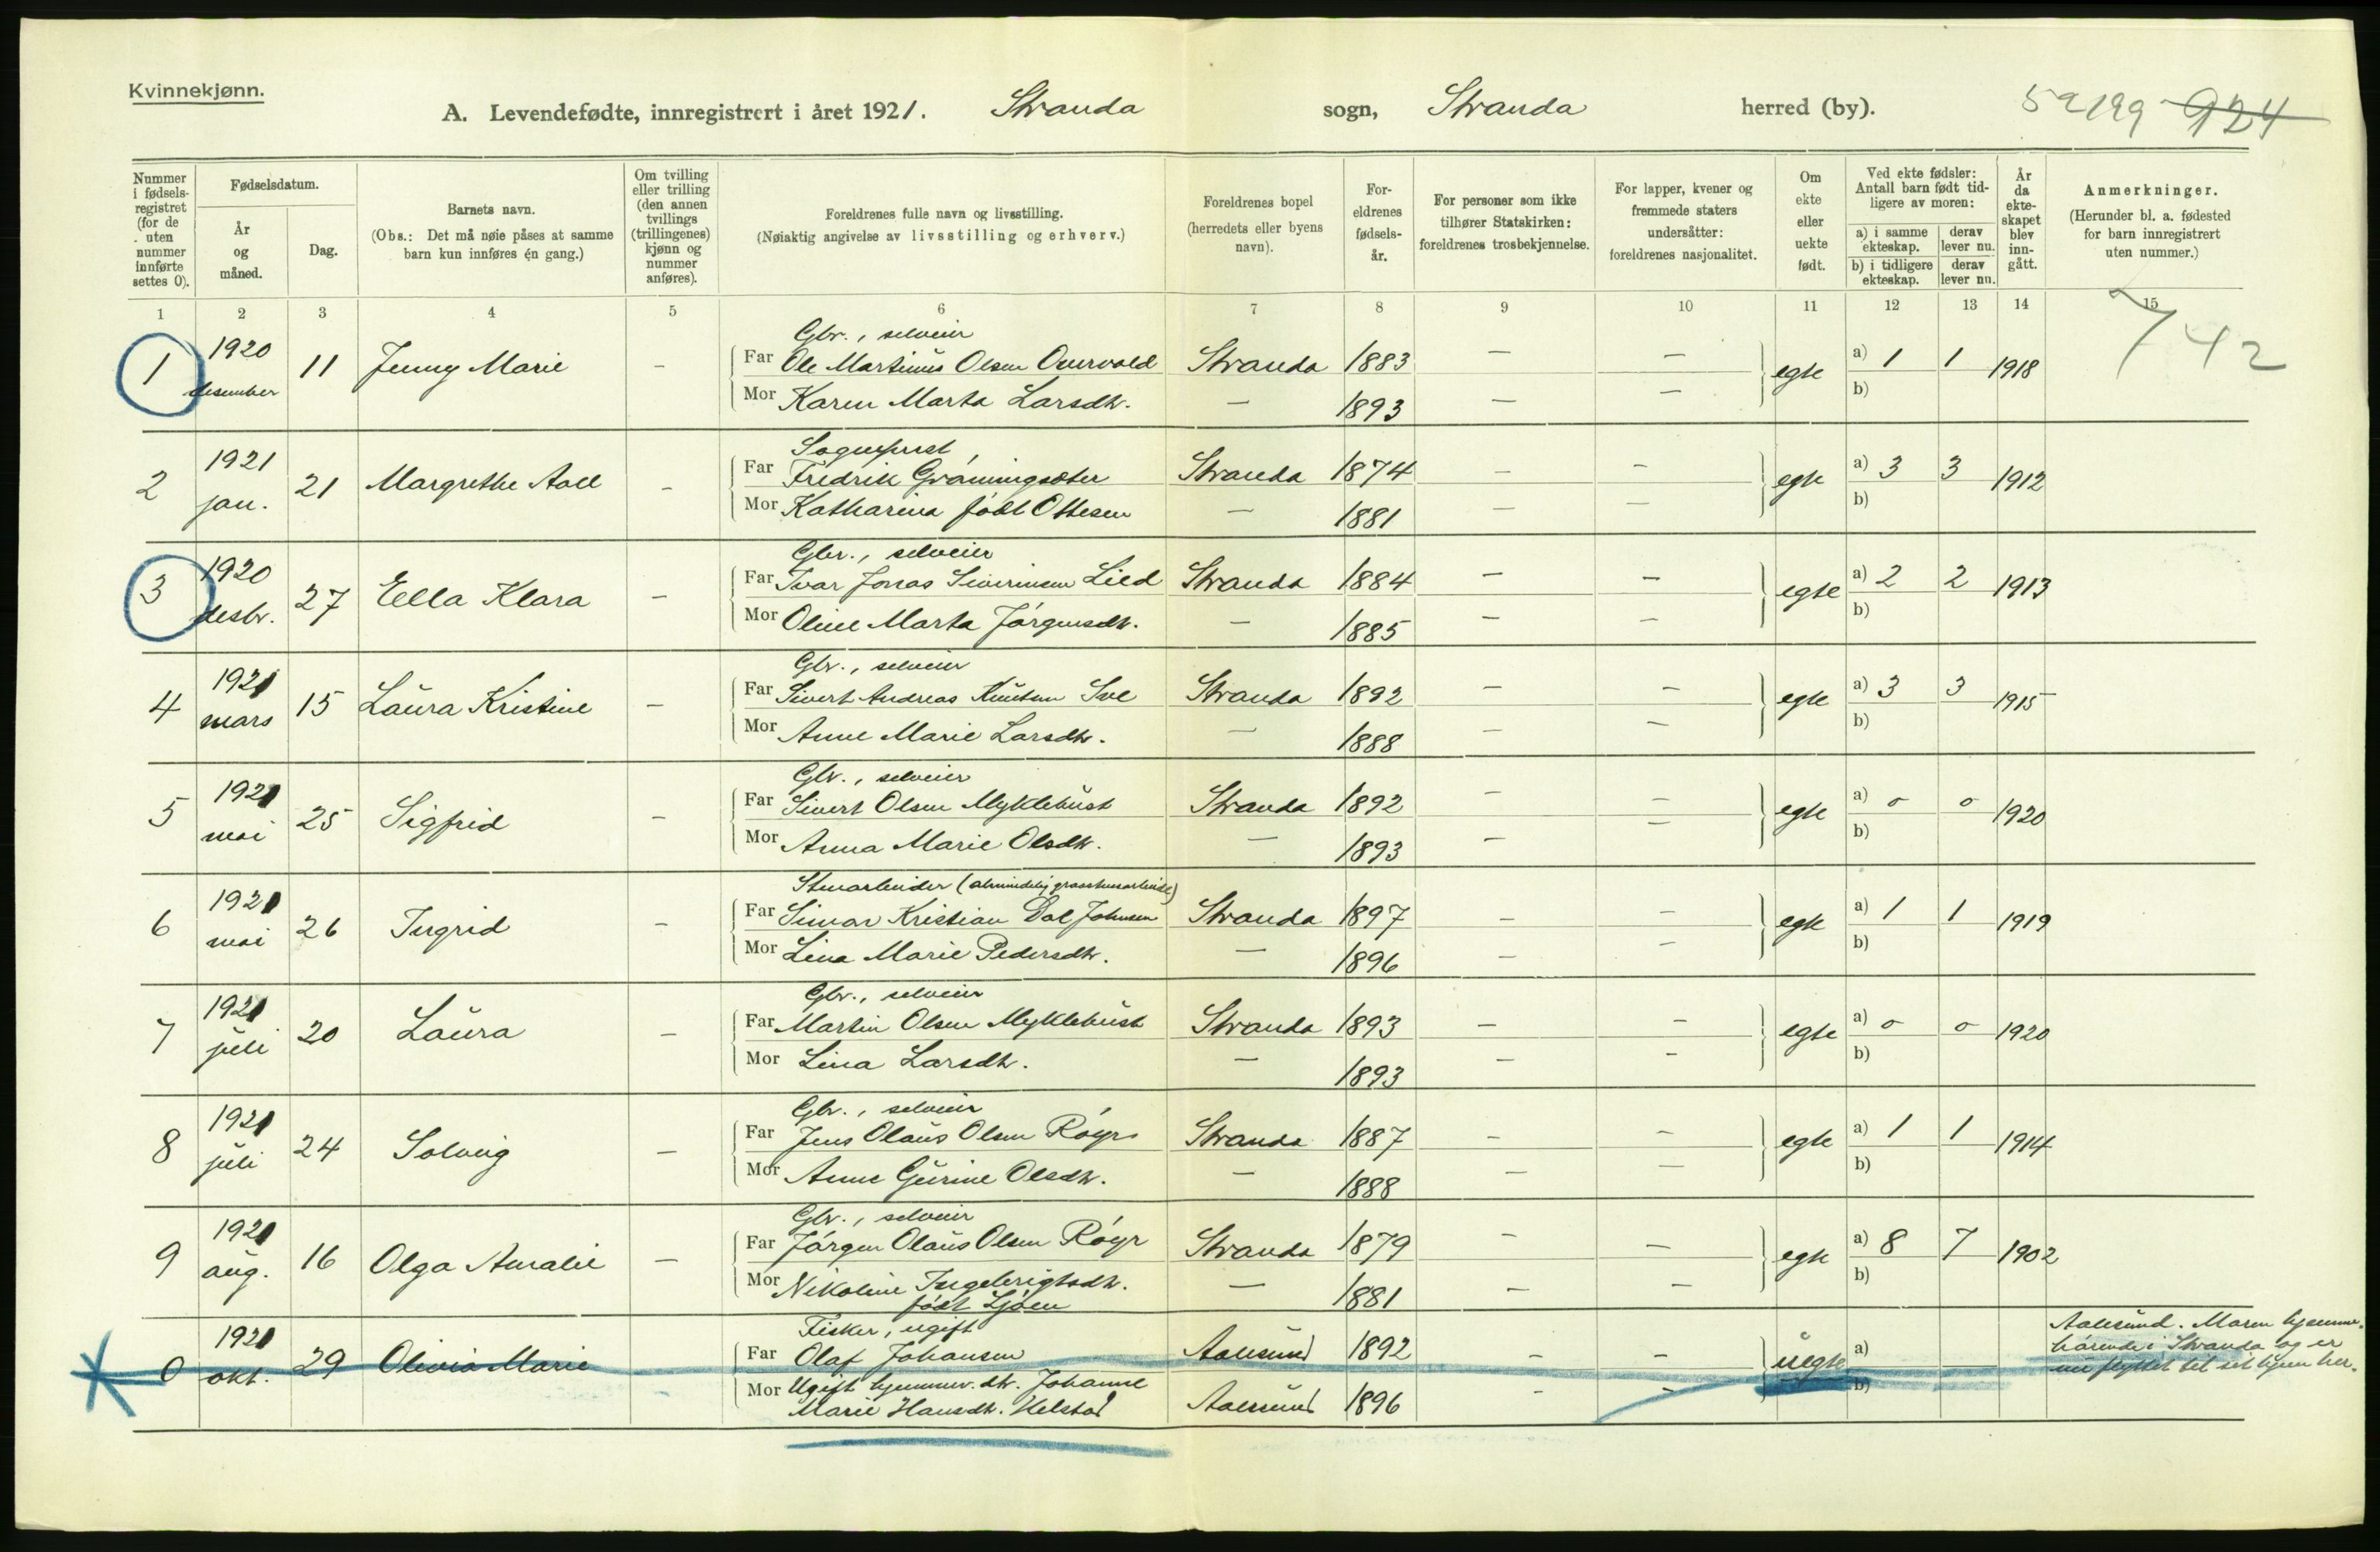 Kvinnekjønn.
A. Levendefødte, innregistrert i året 1921. Stranda sogn, Stranda herred (by). 924
Nummer i fødsels- registret (for de uten nummer innførte settes 0).
Fødselsdatum.
År og måned.
Dag.
Barnets navn.
(Obs.: Det må nøie påses at samme barn kun innføres én gang.)
Om tvilling eller trilling (den annen tvillings (trillingenes) kjønn og nummer anføres).
Foreldrenes fulle navn og livsstilling.
(Nøiaktig angivelse av livsstilling og erhverv.)
Foreldrenes bopel (herredets eller byens navn).
For- eldrenes fødsels- år.
For personer som ikke tilhører Statskirken: foreldrenes trosbekjennelse.
For lapper, kvener og fremmede staters undersåtter: foreldrenes nasjonalitet.
Om ekte eller uekte født.
Ved ekte fødsler: Antall barn født tid- ligere av moren:
a) i samme ekteskap. derav lever nu.
b) i tidligere ekteskap. derav lever nu.
År da ekte- skapet blev inn- gått.
Anmerkninger.
(Herunder bl. a. fødested for barn innregistrert uten nummer.)
1 2 3 4 5 6 7 8 9 10 11 12 13 14 15
742
Gbr., selveier
1 1920 desember 11 Jenny Marie - Far Ole Martinus Olsen Overvold Stranda 1883 - - egte a) 1 1 1918
Mor Karen Marta Larsdtr. - 1893 - - b)
Sogneprest,
2 1921 jan. 21 Margrethe Aall - Far Fredrik Grøningsæter Stranda 1874 - - egte a) 3 3 1912
Mor Katharina født Ottesen - 1881 - - b)
Gbr., selveier
3 1920 desbr. 27 Ella Klara - Far Ivar Jonas Siverinsen Lied Stranda 1884 - - egte a) 2 2 1913
Mor Oline Marta Jörgensdtr. - 1885 - - b)
Gbr., selveier
4 1921 mars 15 Laura Kristine - Far Sivert Andreas Knutsen Sve Stranda 1892 - - egte a) 3 3 1915
Mor Anne Marie Larsdtr. - 1888 - - b)
Gbr., selveier
5 1921 mai 25 Sigfrid - Far Sivert Olsen Myklebust Stranda 1892 - - egte a) 0 0 1920
Mor Anna Marie Olsdtr. - 1893 - - b)
Stenarbeider (almindelig
6 1921 mai 26 Ingrid - Far Kristian Dal Johnsen Stranda 1897 - - egte a) 1 1 1919
Mor Lina Marie Pedersdtr. - 1896 - - b)
Gbr., selveier
7 1921 juli 20 Laura - Far Martin Olsen Myklebust Stranda 1893 - - egte a) 0 0 1920
Mor Lina Larsdtr. - 1893 - - b)
Gbr., selveier
8 1921 juli 24 Solveig - Far Jens Olaus Olsen Røyr Stranda 1887 - - egte a) 1 1 1914
Mor Anne Gurine Olsdtr. - 1888 - - b)
Gbr., selveier
9 1921 aug. 16 Olga Amalie - Far Jörgen Olaus Olsen Röyr Stranda 1879 - - egte a) 8 7 1902
Mor Nikoline Ingebrigtsdtr. - 1881 - - b)
født Ljöen
Fisker, ugift
0 1921 okt. 29 Olivia Marie - Far Olaf Johansen Aalesund 1892 - - uegte a)
Mor Ugift hjemmev. dtr. Johanne
Marie Hansdtr. Helstad Aalesund 1896 - - b)
Aalesund. Moren hjemme-
hörende i Stranda og er
nu flyttet til sit hjem her.